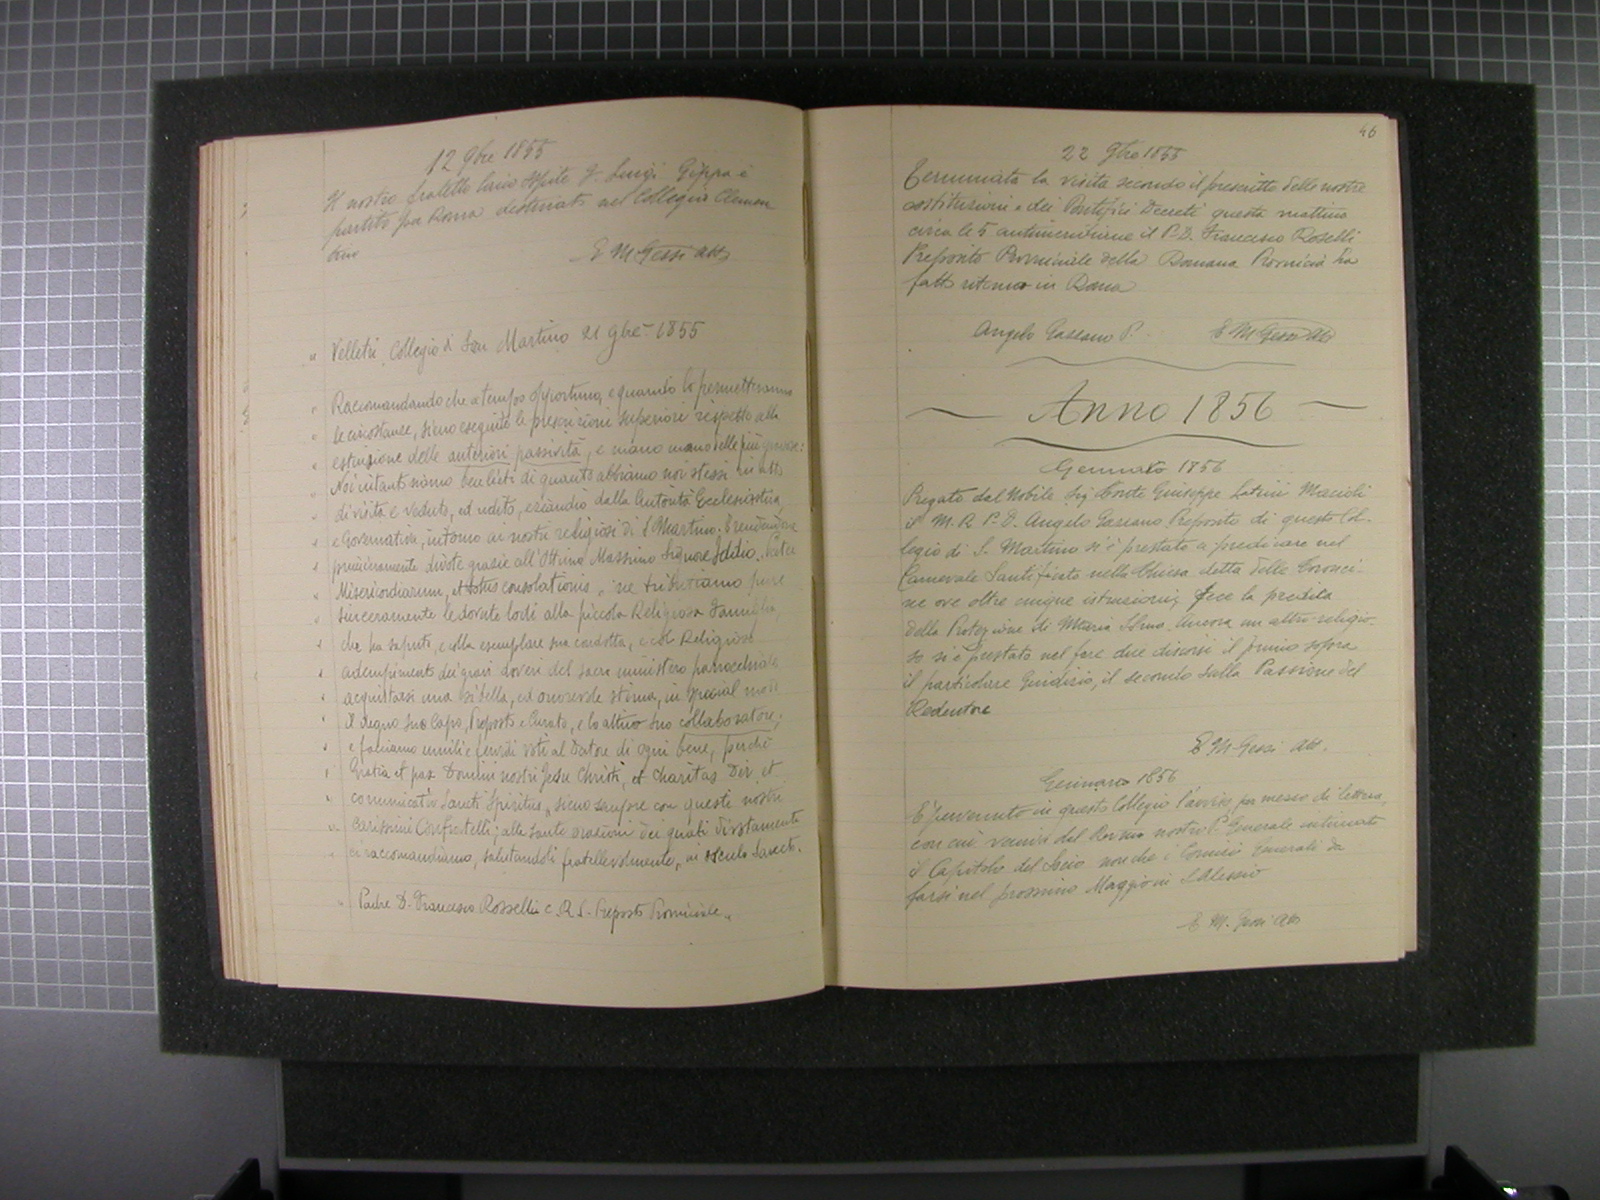 12 9bre 1855
Il nostro fratello laico Ospite F. Luigi Gippa è
partito per Roma destinato nel Collegio Clemen
tino
E M Gessi att.
" Velletri Collegio di San Martino 21 9bre 1855
" Raccomandando che a tempo opportuno, e quando lo permetteranno
" le circostanze, sieno eseguite le prescrizioni superiori rispetto alla
" estinzione delle anteriori passività, e mano mano delle più gravose:
" Noi intanto siamo ben lieti di quanto abbiamo noi stessi in atto
" di visita e veduto, ed udito, eziandio dalla Autorità Ecclesiastica,
" e Governativa, intorno ai nostri religiosi di S Martino. Rendendone
" primieramente divote grazie all'Ottimo Massimo Signore Iddio. Pater
" Misericordiarum, et totius consolationis, ne tributiamo pure
" sinceramente le dovute lodi alla piccola Religiosa Famiglia,
" che ha saputo, e colla esemplare sua condotta, e col Religioso
" adempimento dei gravi doveri del sacro ministero parrocchiale
" acquistarsi una sì bella, ed onorevole stima, in special modo
" il degno suo Capo, Preposto e Curato, e lo attivo suo collaboratore;
" e facciamo umili e fervidi voti al Datore di ogni bene, perchè
" Gratia et pax Domini nostri Jesu Christi, et charitas Dei, et
" comunicatio Sancti Spiritus, sieno sempre con questi nostri
" carissimi Confratelli; alle sante orazioni dei quali distintamente
" ci raccomandiamo, salutandoli fratellevolmente, in osculo Sancto.
" Padre D. Francesco Rosselli C. R. S. Preposto Provinciale "
46
22 9bre 1855
Terminata la visita secondo il prescritto delle nostre
costituzioni e dei Pontifici Decreti questa mattina
circa le 5 antimeridiane il P. D. Francesco Roselli
Preposito Provinciale della Romana Provincia ha
fatto ritorno in Roma
Angelo Gassano P. E M Gessi Att
Anno 1856
Gennaio 1856
Pregato dal Nobile Sig Conte Giuseppe Latini Macioti
il M. R. P. D. Angelo Gassano Preposito di questo Col-
legio di S. Martino si è prestato a predicare nel
Carnevale Santificato nella Chiesa detta delle Coronci-
ne ove oltre cinque istruzioni, fece la predica
della Protezione di Maria SSma. Ancora un altro religio-
so si è prestato nel fare due discorsi il primo sopra
il particolare Giudizio, il secondo sulla Passione del
Redentore
E M Gessi Att.
Gennaro 1856
È pervenuto in questo Collegio l'avviso per mezzo di lettera,
con cui veniva dal Revmo nostro P. Generale intimato
il Capitolo del Socio non che i Comizi Generali da
farsi nel prossimo Maggio in S Alessio
E M. Gessi Att